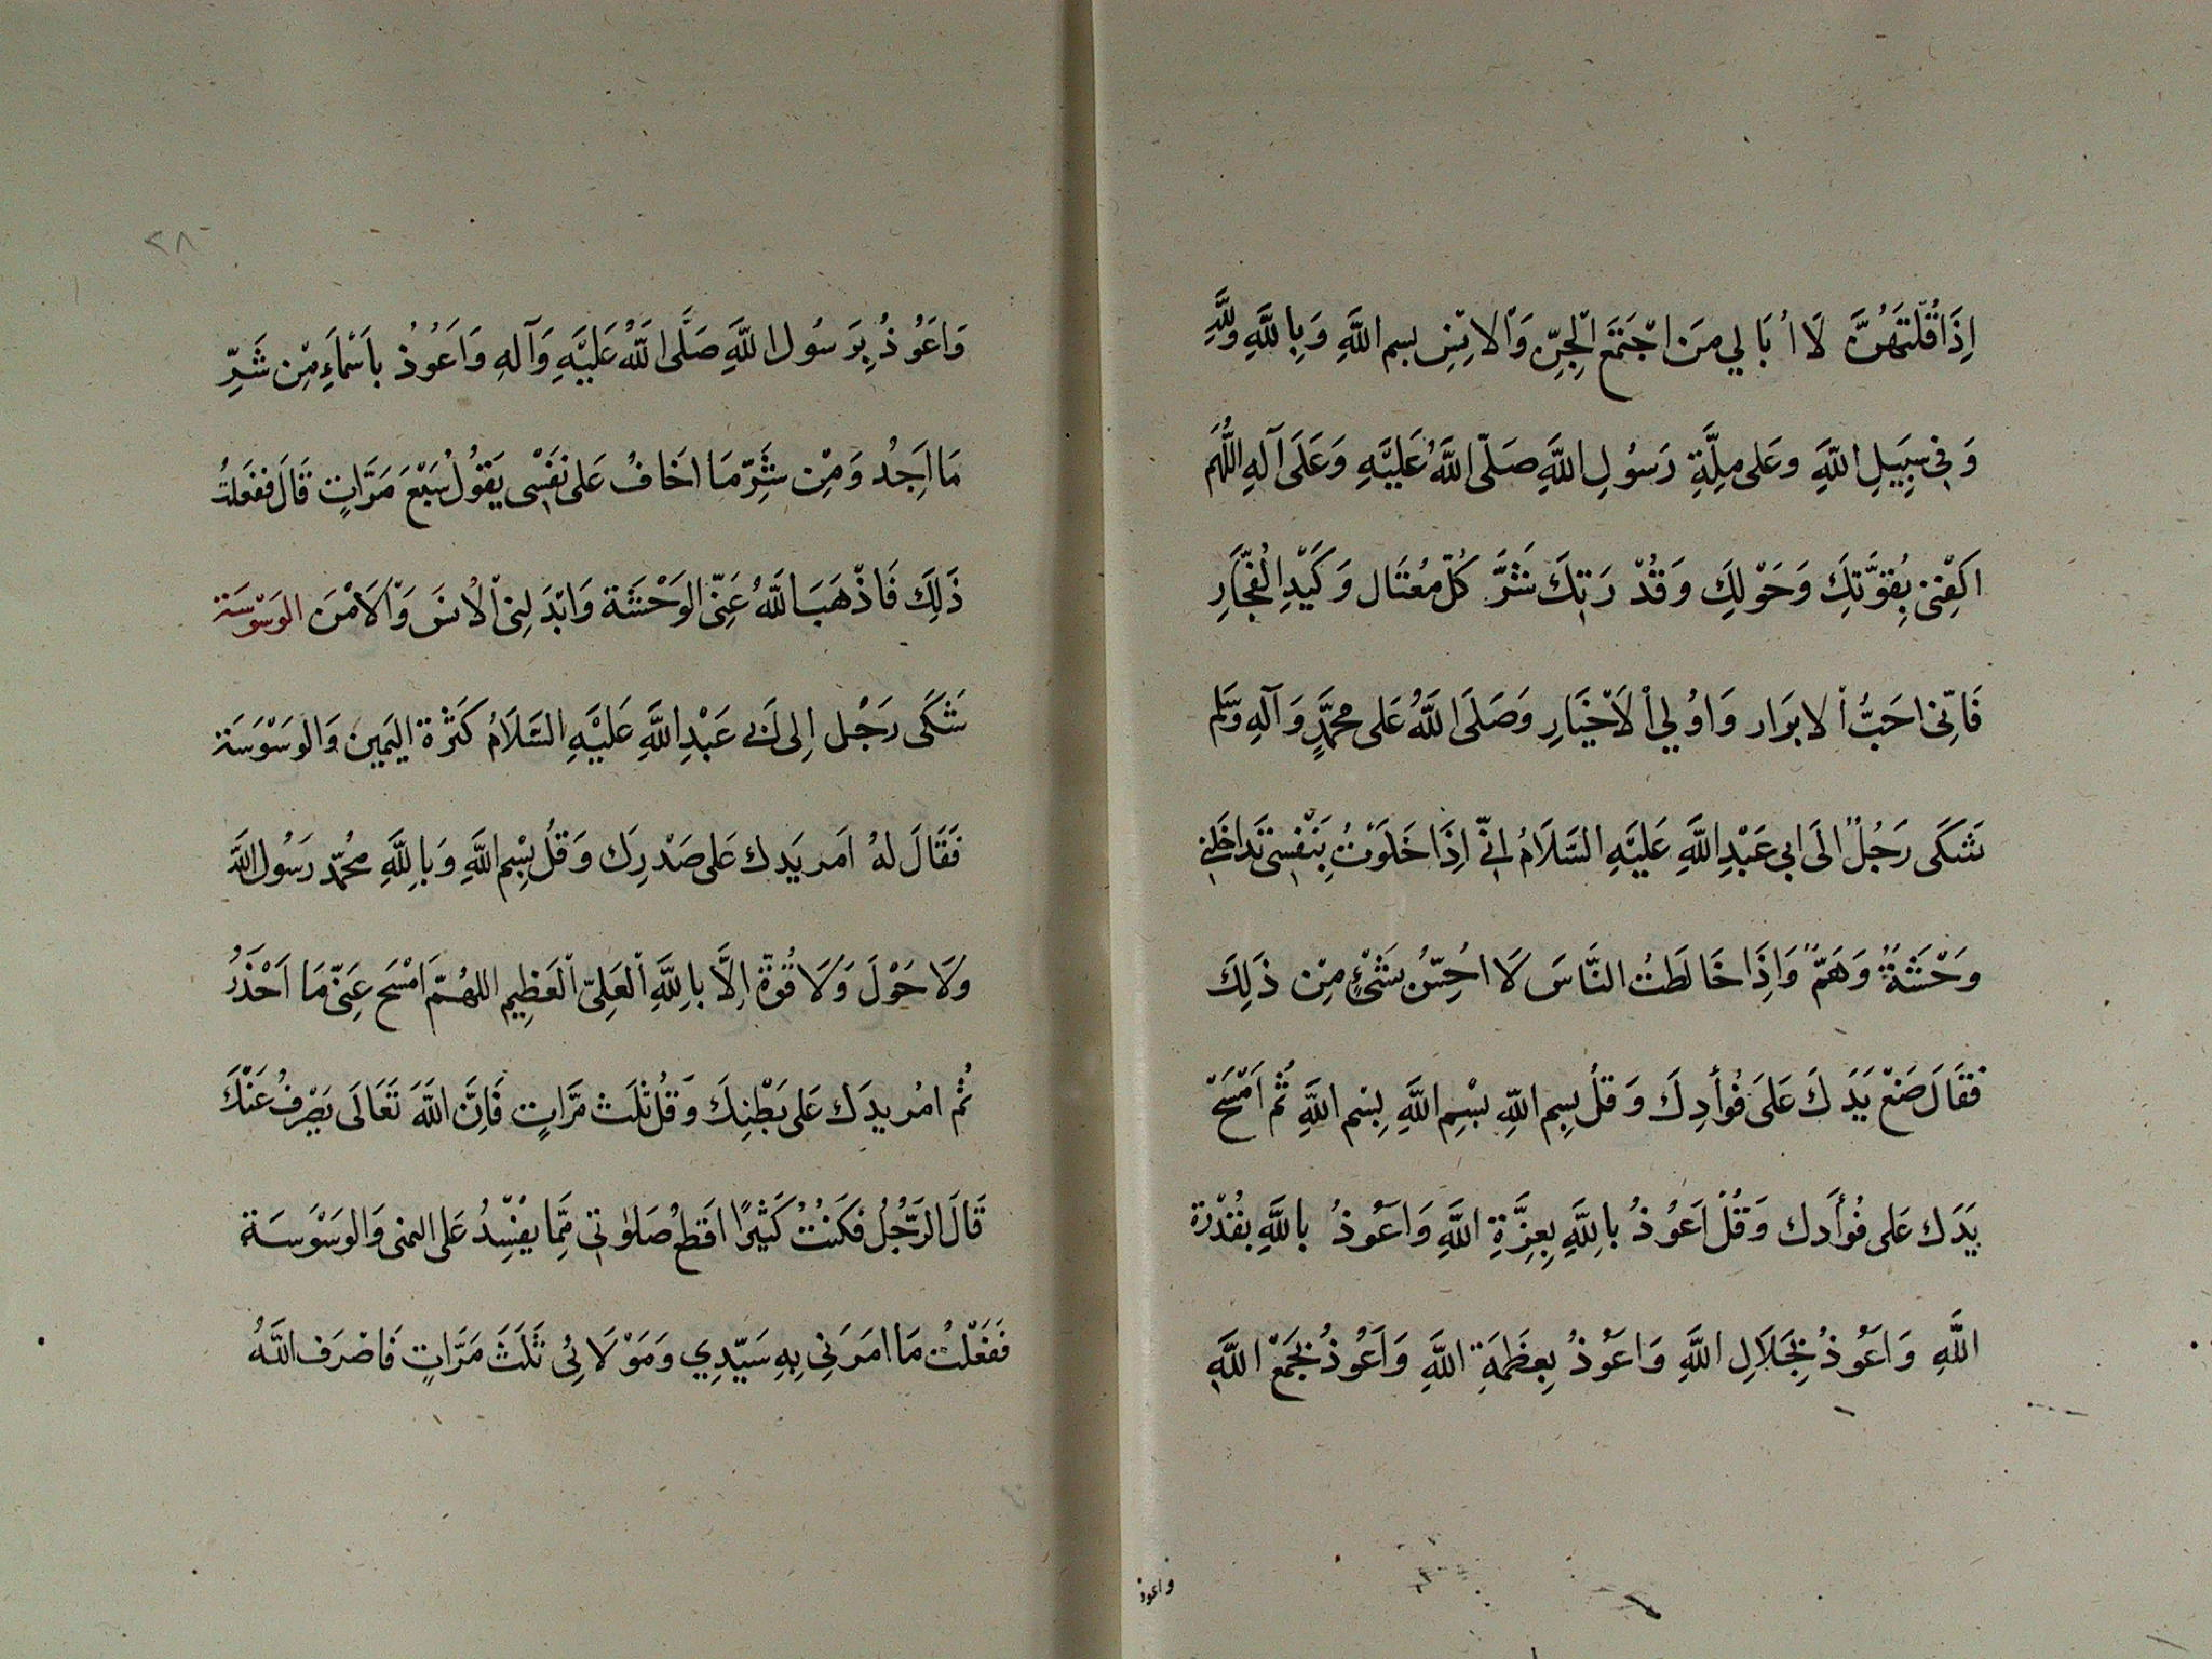 اِذَا قُلْتَهُنَّ لَا اُبَالِي مَن اجْتَمَعَ الْجِنِّ وَالْاِنْسِ بسم اللَّهِ وَبِاللَّهِ وَلِلَّهِ
وَفِي سَبِيلِ اللَّهِ وعَلى مِلَّةِ رَسُولِ اللَّهِ صَلّى اللَّهُ عَلَيْهِ وَعَلَى آلِهِ اللَّهُمَّ
اكفِنِى بِقُوَّتِكَ وَحَوْلِكَ وَقُدْرَتِكَ شَرَّ كُلّ مُغتَال وَكَيْدِ الْفُجَّارِ
فَاِنّى احَبُّ الْابرَار وَاوُلي الْاَخْيَارِ وَصَلَى اللَّهُ عَلى محمَّدٍ وَآلِهِ وَسَلم
شَكَى رَجُلٌ الَى ابى عَبْدِ اللَّهِ عَلَيْهِ السَّلَامُ انّى اِذَا خَلَوْتُ بِنَفْسِى تَدَاخَلَنِى
وَحْشَةٌ وَهَمٌّ وَاِذَا خَالَطتُ النَّاسَ لَا احُسِّنُ بشَئٍ مِنْ ذَلِكَ
فَقَالَ ضَعْ يَدَكَ عَلَى فُوأَدِكَ وَقُلْ بِسِمِ اللّهِ بسْمِ اللَّهِ بِسْم اللَّهِ ثُم اَمْسَحْ
يَدَك عَلى فُوأَدك وَقُلْ اَعُوذُ بالِلَّهِ بِعِزَّةِ اللَّهِ وَاعَوُذُ بالَّلهِ بقُدْرَة
اللَّهِ وَاعَوُذُ بِجَلَالِ اللَّهِ وَاعَوُذُ بِعظَمَةِ اللَّهِ وَاَعَوُذُ بجَمْعِ اللَّهِ
واعوذ
٢٨٠
وَاعَوُذُ بِرَسُول اللَّهِ صَلَّى اللَّهُ عَلَيْهِ وَآلهِ وَاَعَوُذُ باَسْمَاءِ مِنْ شَرِّ
مَا اَجِدُ وَمِنْ شَرِّ مَا اخَافُ عَلى نَفْسِى يَقوُلُ سَبْعَ مَرَّاتٍ قَالَ فَفَعَلتُ
ذَلِكَ فَاذْهَبَ اللَّهُ عَنِّى الوَحْشَة وَابْدَلنِى الْاُنسَ وَالْاَمْنَ الوَسْوَسَة
شَكَى رَجْل اِلى اَبى عَبْدِ اللَّهِ عَلَيْهِ السَّلَامُ كَثْرَة اليَمين وَالوسَوْسَة
فَقَالَ لهُ اَمر يَدك عَلى صَدْرِك وَقُلْ بِسْمِ اللَّهِ وَبالِلَّهِ محُمّد رَسُول اللَّه
وَلَا حَوْلَ وَلَا قُوّةَ اِلَّا بالِلَّهِ الْعَلِىّ الْعَظِيمِ اللهُمّ اَمْسَح عَنِّى مَا اَحْذَرُ
ثُم امُر يدَك عَلى بَطْنِكَ وَقُل ثلَث مَرَّاتٍ فَاِنَّ اللَّهَ تَعَالَى يَصْرِفُ عَنْكَ
قَالَ الرَّجُلُ فَكُنْتُ كَثيرًا اقَطعُ صَلوٰتى مِمَّا يفُسِدُ عَلى اليمنى وَالوسَوَسَة
فَفَعَلْتُ مَا امَرَنِى بِهِ سَيّدِي وَمَوْلَائى ثَلَثَ مَرَّاتٍ فَاصْرَف اللَّهُ